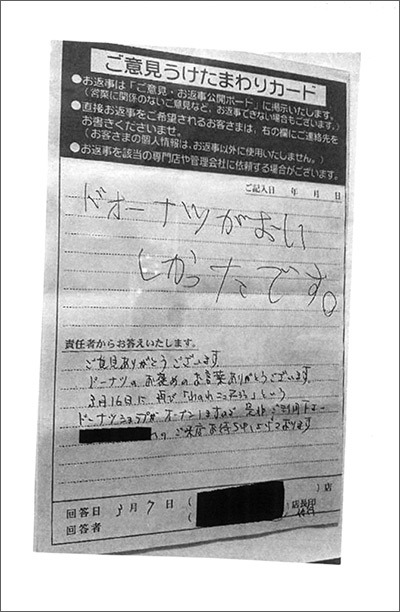 ご意見うけたまわりカード
●お返事は「ご意見・お返事公開ボード」に掲示いたします。
(営業に関係のないご意見など、お返事できない場合もございます。)
●直接お返事をご希望されるお客さまは、右の欄にご連絡先を
お書きくださいませ。
(お客さまの個人情報は、お返事以外に使用いたしません。)
●お返事を該当の専門店や管理会社に依頼する場合がございます。
ご記入日 年 月 日
ドオーナツがおい
しかったです。
責任者からお答えいたします。
ご意見ありがとうございます
ドーナツのお褒めのお言葉ありがとうございます。
3月16日に
という
ドーナツショップがオープンしますので是非ご利用下さい
のご来店お待ち申し上げております
( )店
回答日 3月7日 店長印
回答者